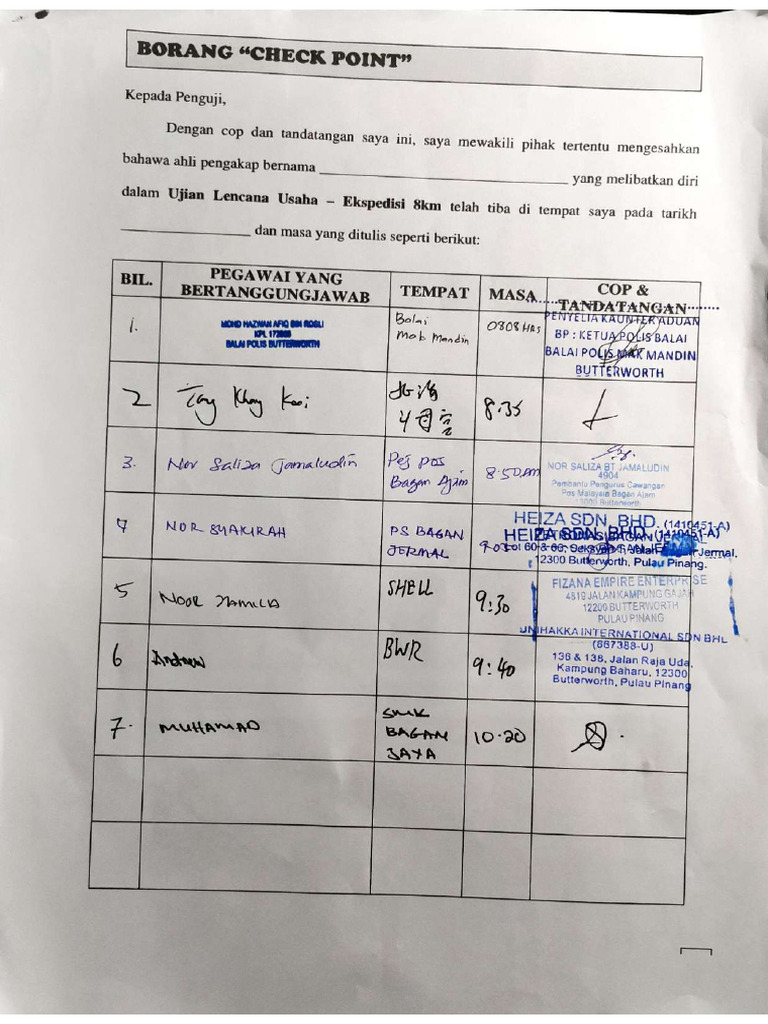 BORANG “CHECK POINT”
Kepada Penguji,
Dengan cop dan tandatangan saya ini, saya mewakili pihak tertentu mengesahkan
bahawa ahli pengakap bernama ________ yang melibatkan diri
dalam Ujian Lencana Usaha – Ekspedisi 8km telah tiba di tempat saya pada tarikh
________ dan masa yang ditulis seperti berikut:
BIL.
PEGAWAI YANG
BERTANGGUNGJAWAB
TEMPAT
MASA
COP &
TANDATANGAN
1.
MOHD HAZWAN AFIQ BIN ROSLI
KPL
BALAI POLIS BUTTERWORTH
Balai
Mak Mandin
0808 HRS
PENYELIA KAUNTER ADUAN
BP : KETUA POLIS BALAI
BALAI POLIS MAK MANDIN
BUTTERWORTH
2
8.35
3.
Nor Saliza Jamaludin
Pej Pos
Bagan Ajam
8.50 AM
NOR SALIZA BT JAMALUDIN
4904
Pembantu Pengurus Cawangan
Pos Malaysia Bagan Ajam
13000 Butterworth
4
NOR SYAKIRAH
PS BAGAN
JERMAL
HEIZA SDN. BHD. (1410451-A)
HEIZA SDN. BHD. (1410451-A)
Jermal.
12300 Butterworth, Pulau Pinang.
5
NOOR
SHELL
9:30
FIZANA EMPIRE ENTERPRISE
4819 JALAN KAMPUNG GAJAH
12200 BUTTERWORTH
PULAU PINANG
6
Andrew
BWR
9:40
UNIHAKKA INTERNATIONAL SDN BHD
(667388-U)
136 & 138, Jalan Raja Uda,
Kampung Baharu, 12300
Butterworth, Pulau Pinang
7.
MUHAMAD
SMK
BAGAN
JAYA
10.20